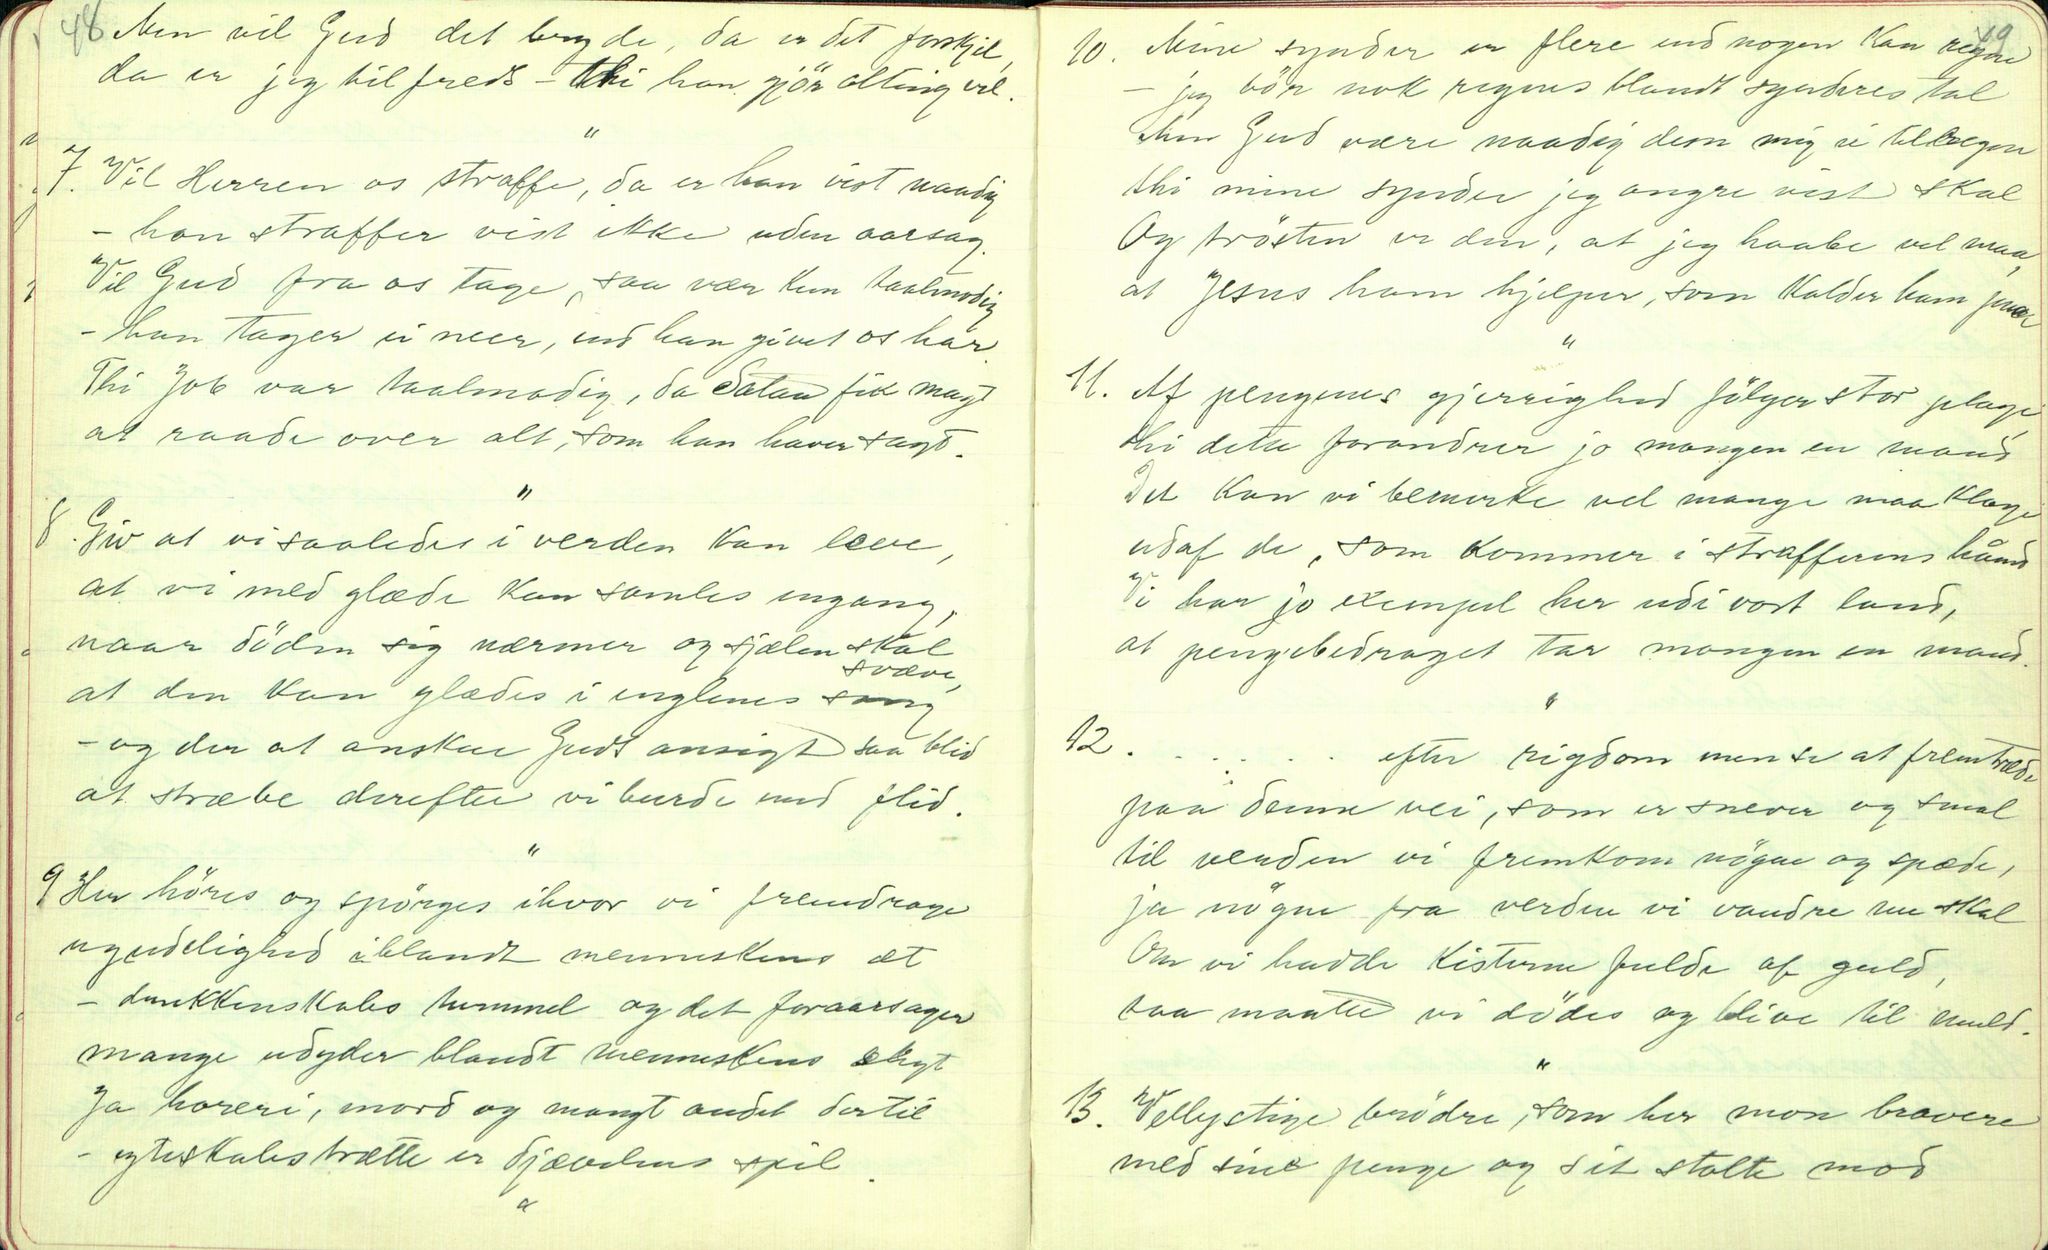 48
Men vil Gud det byde, da er det forskjel,
da er jeg tilfreds - thi han gjör alting vel.
"
7. Vil Herren os straffe, da er han vist naadig
- han straffer vist ikke uden aarsag.
Vil Gud fra os tage, saa vær kun taalmodig
- han tager ei meer, end han givet os har.
Thi Job var taalmodig, da Satan fik magt
at raade over alt, som han haver sagt.
"
8. Giv at vi saaledes i verden kan leve,
at vi med glæde kan samles engang,
naar döden sig nærmer og sjælen skal
svæve,
at den kan glædes i englenes sang
- og der at anskue Guds ansigt saa blid
at stræbe derefter vi burde med flid.
"
9 Her höres og spörges ihvor vi fremdrage
ugudelighed iblandt menneskens æt
- drukkenskabs tummel og det foraarsager
mange udyder blandt menneskens slegt
Ja horeri, mord og mangt andet dertil
- egteskabstrætte er djævelens spil.
"
49
10. Mine synder er flere end nogen kan regne
- jeg bör nok regnes blandt synderes tal
Men Gud være naadig dem mig ei tilregne
thi mine synder jeg angre vist skal
Og trösten er den, at jeg haabe vel maa,
at Jesus ham hjelper, som kalder ham paa
"
11. Af pengenes gjerrighed fölger stor plage,
thi dette forandrer jo mangen en mand
Det kan vi bemerke vel mange maa klage
udaf de, som kommer i strafferens hånd
Vi har jo exempel her udi vort land,
at pengebedraget tar mangen en mand.
"
12. . . . . . . efter rigdom men se at fremtræde
paa denne vei, som er snever og smal
til verden vi fremkom nögne og spæde,
ja nögne fra verden vi vandre nu skal
Om vi hadde kisterne fulde af guld,
saa maatte vi dödes og blive til muld.
"
13. Vellystige brödre, som her mon bravere
med sine penge og sit stolte mod